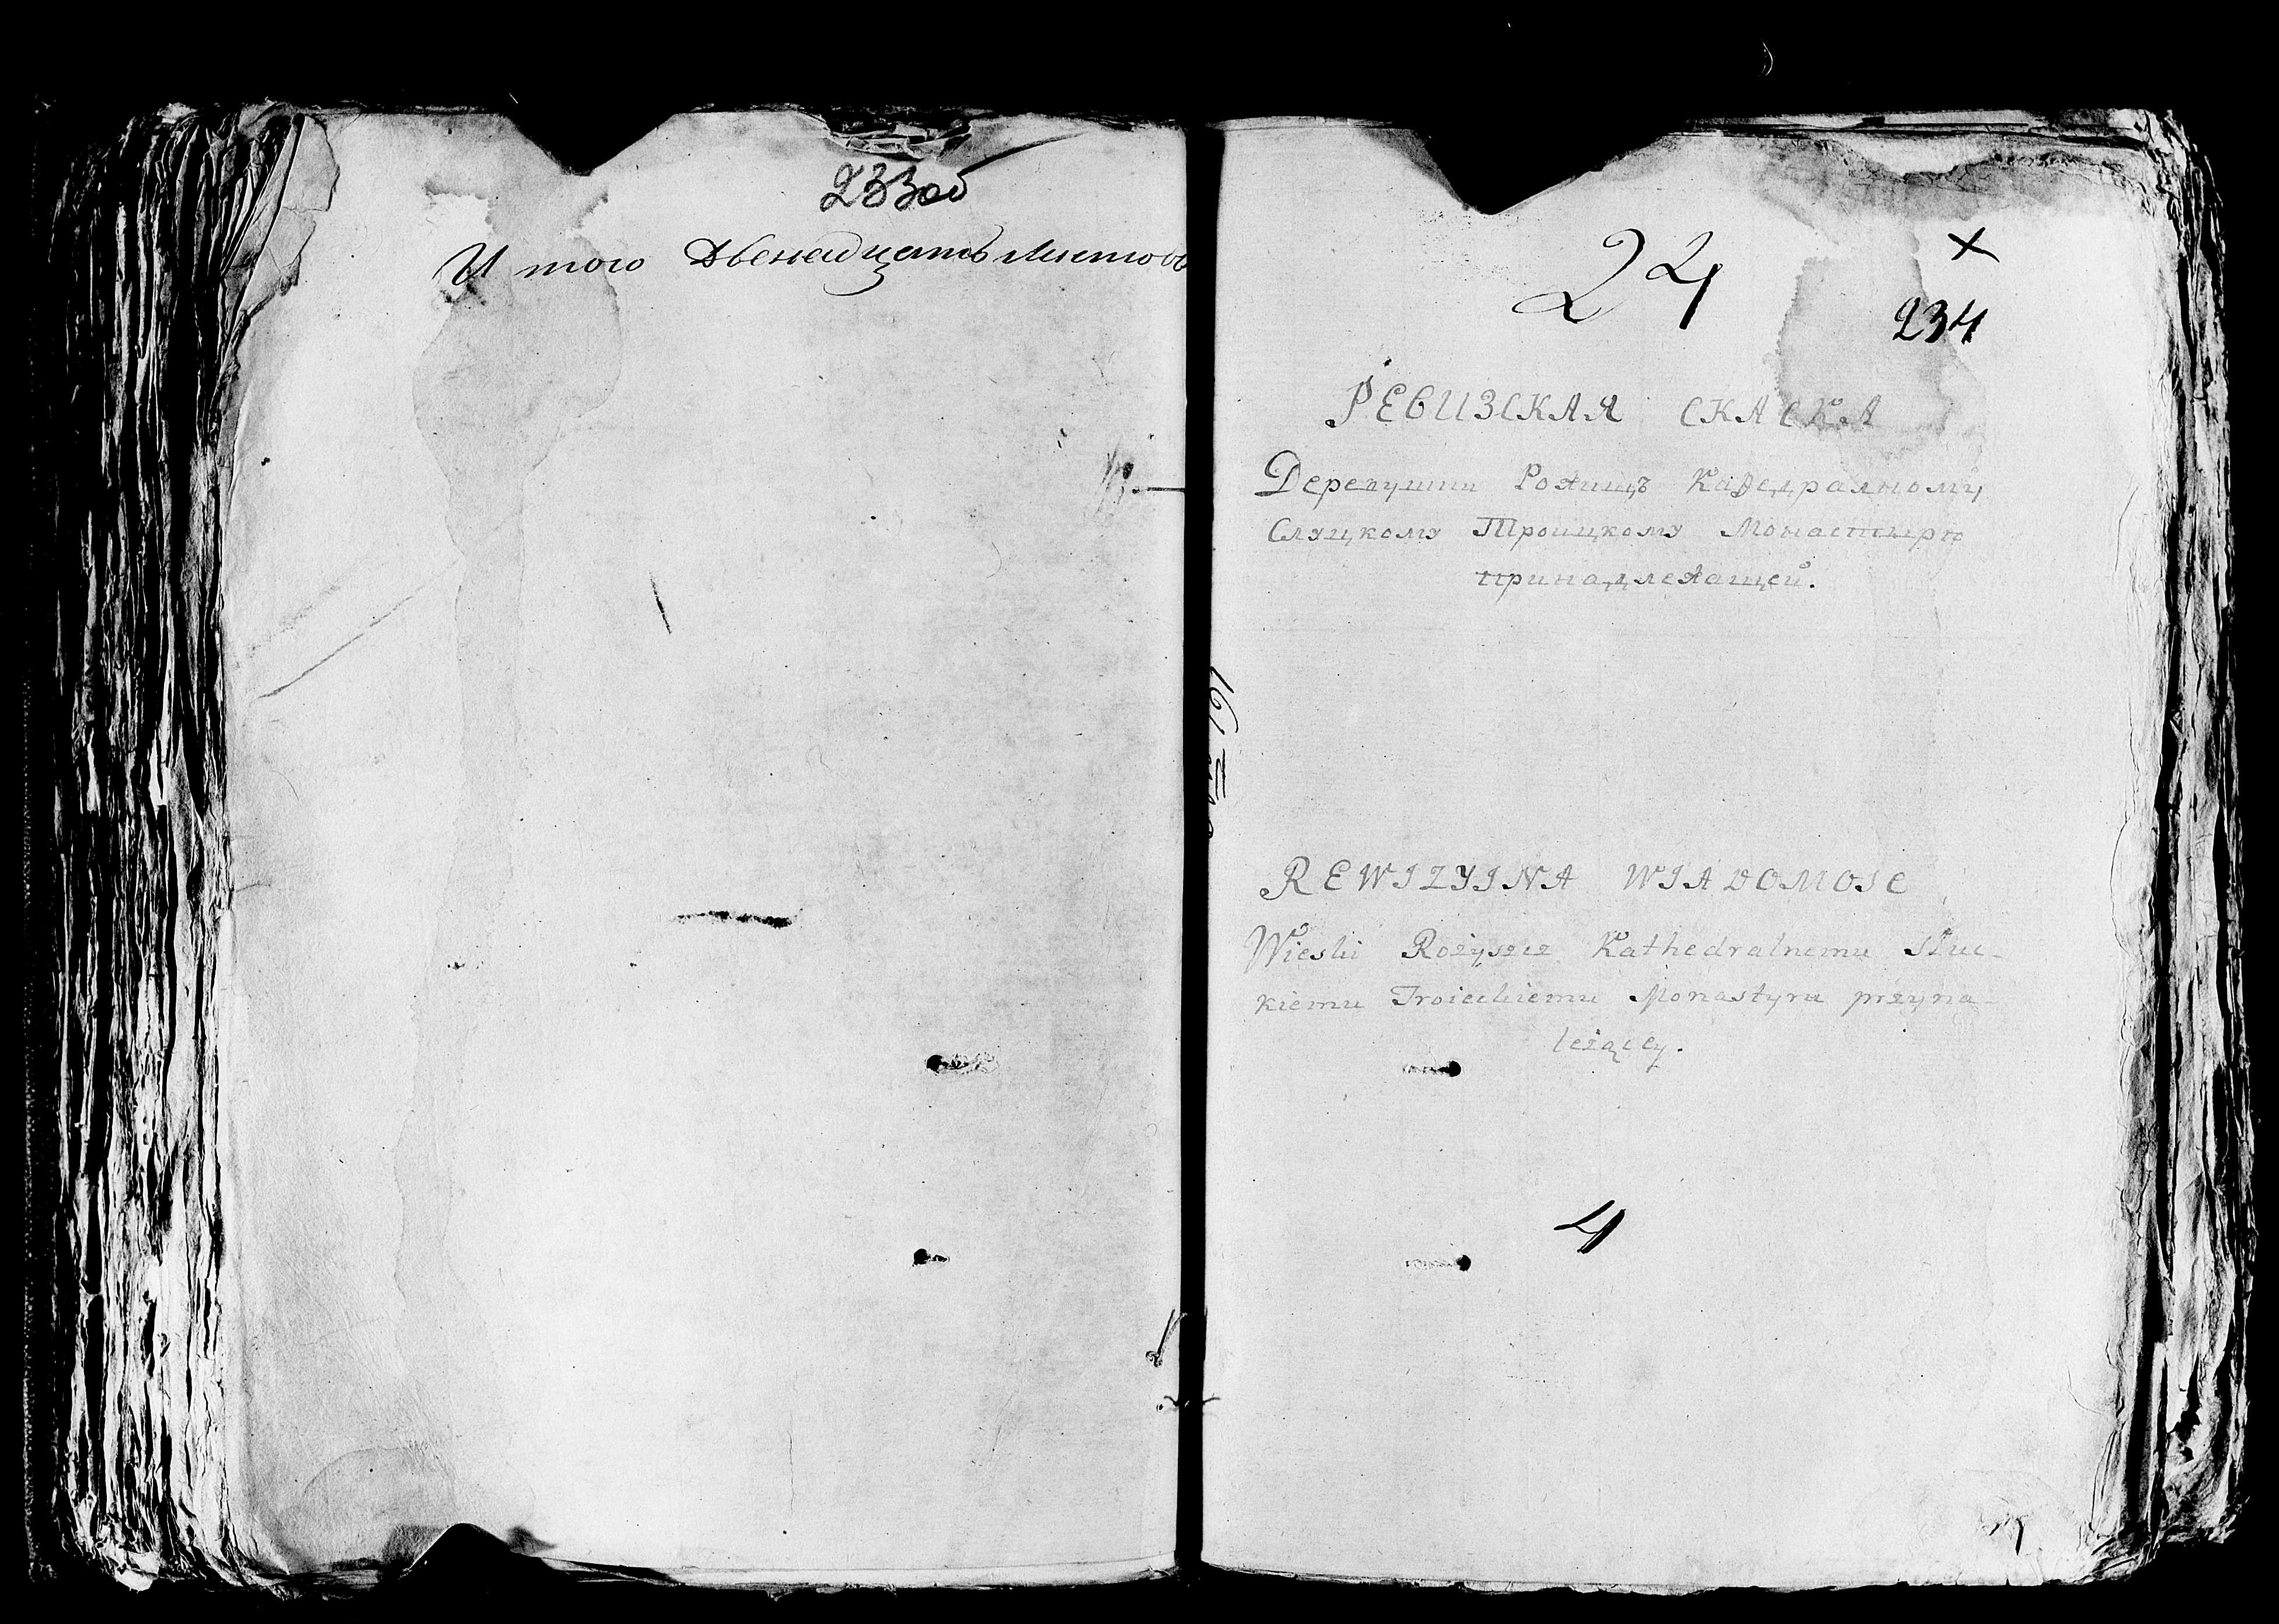 233об
И того двенадцать листовъ
24
234
РЕВИЗСКАЯ СКАСКА
Деревушки Рожищъ Каѳедралному
Слуцкому Троицкому Монастырю
принадлежащей.
REWIZYINA WIADOMOSC
Wieski Rożyszcz Kathedralnemu Słuc-
kiemu Troieckiemu Monastyru przyna-
leżącey.
4